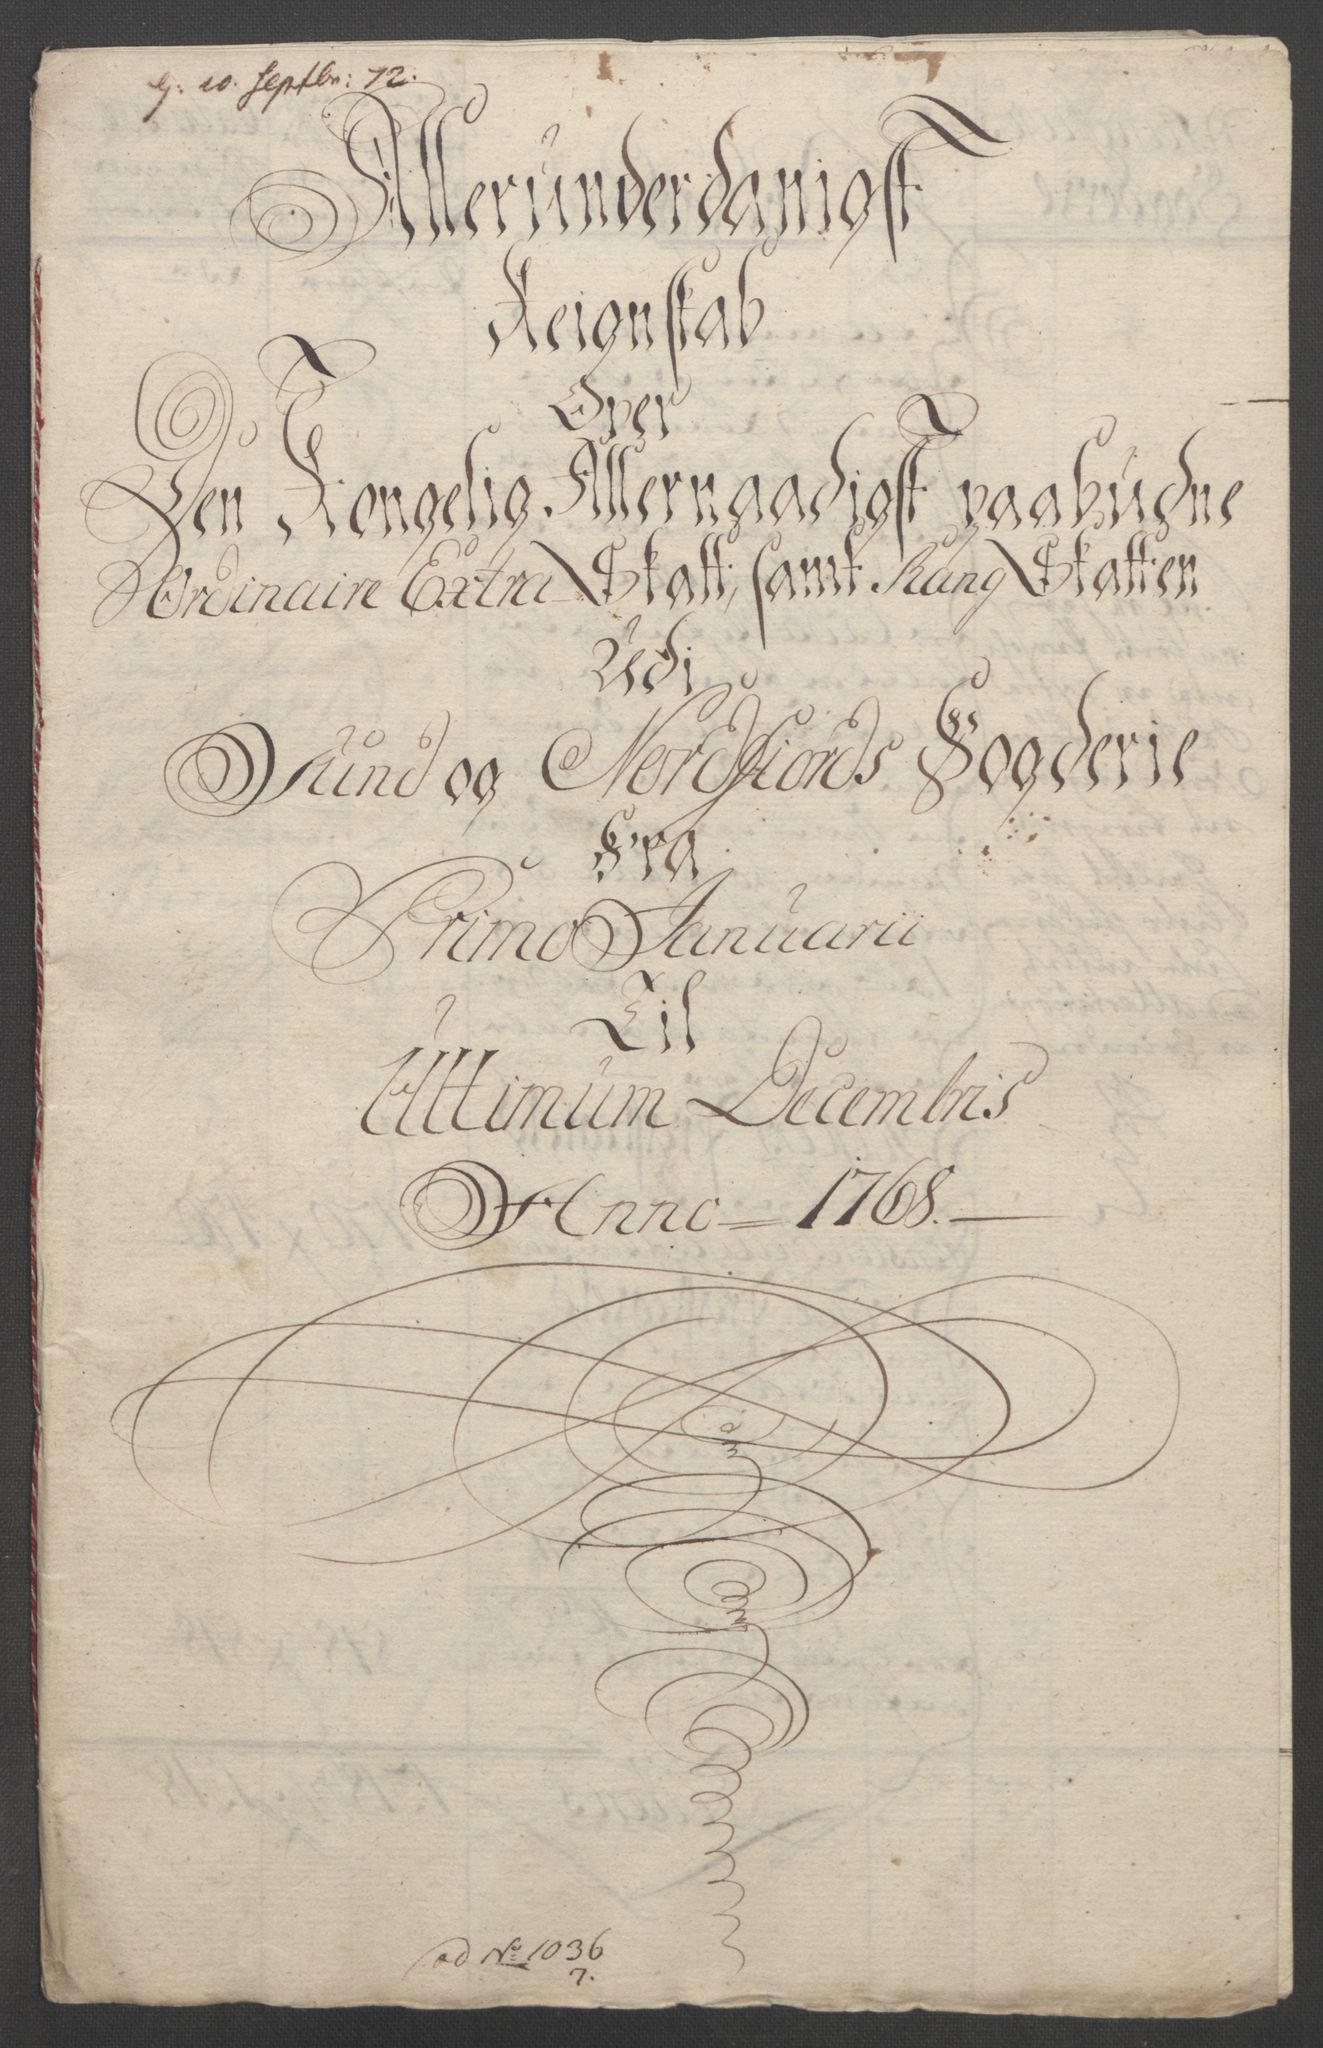 10. Septbr: 72.
Allerunderdanigst
Reignskab
Over
Den Kongelig Allernaadigst paabudne
Ordinaire Extra Skatt, samt Rang Skatten
Udi
Sund og Nordfiords Fogderie
Fra
Primo Januarii
Til
Ultimum Decembris
Anno = 1768.
ad No 1036
7.